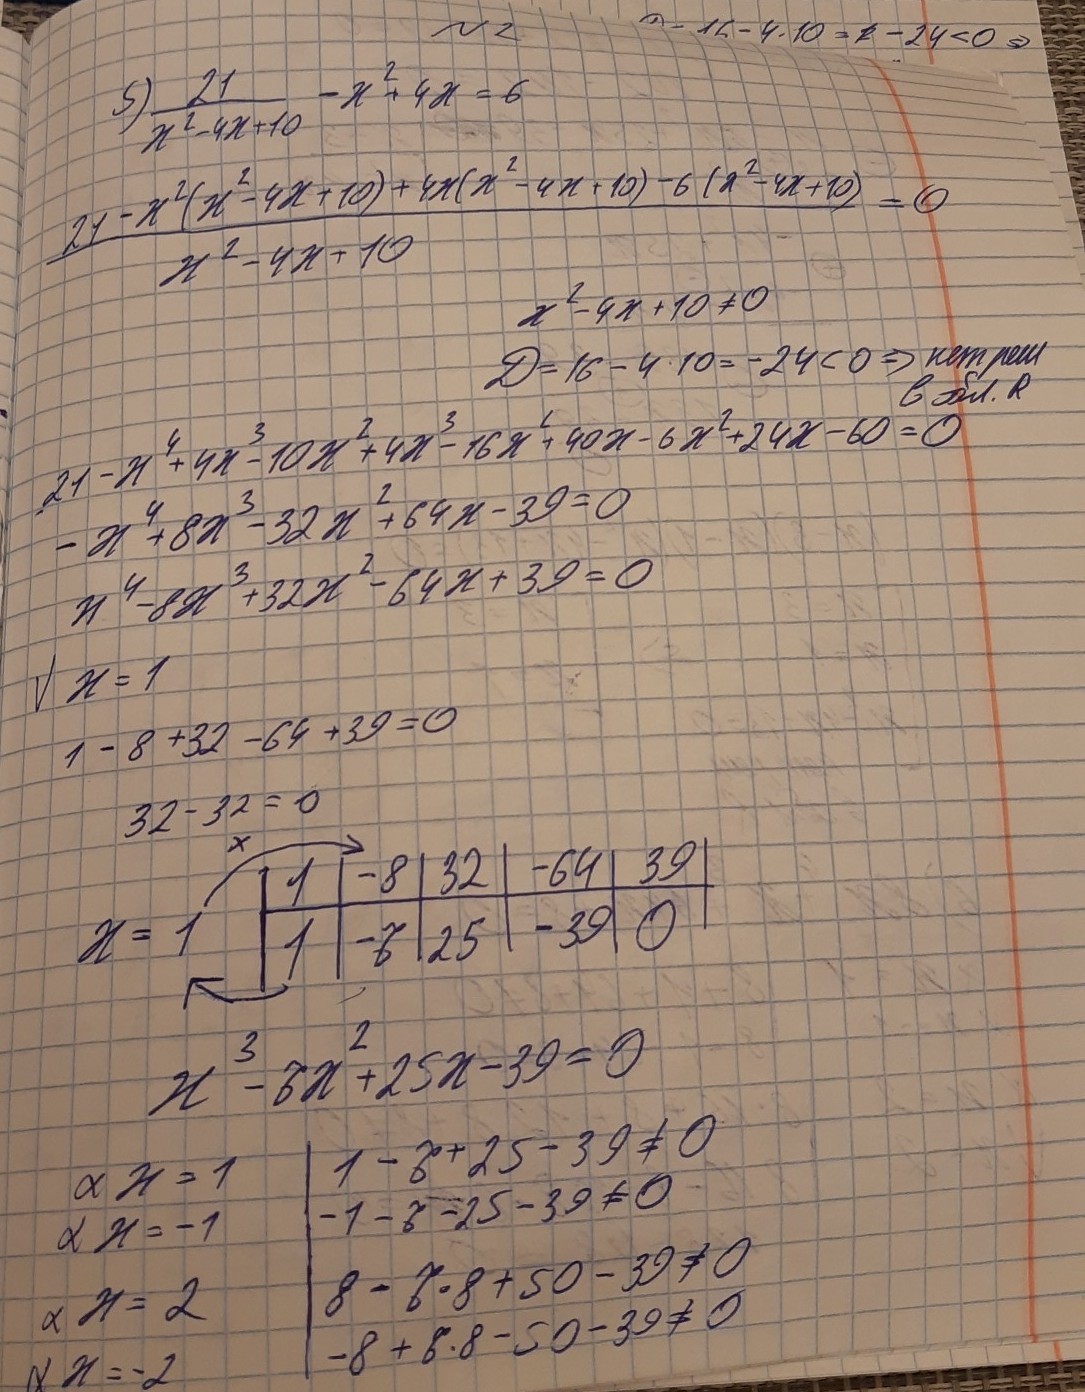 N2
D = 16 - 4·10 = - 24 < 0 ⇒
5) 21/(x² - 4x + 10) - x² + 4x = 6
(21 - x²(x² - 4x + 10) + 4x(x² - 4x + 10) - 6(x² - 4x + 10))/(x² - 4x + 10) = 0
x² - 4x + 10 ≠ 0
D = 16 - 4·10 = -24 < 0 ⇒ нет реш
в обл. R
21 - x⁴ + 4x³ - 10x² + 4x³ - 16x² + 40x - 6x² + 24x - 60 = 0
- x⁴ + 8x³ - 32x² + 64x - 39 = 0
x⁴ - 8x³ + 32x² - 64x + 39 = 0
√ x = 1
1 - 8 + 32 - 64 + 39 = 0
32 - 32 = 0
x
1 | -8 | 32 | -64 | 39
x = 1 | 1 | -7 | 25 | -39 | 0
x³ - 7x² + 25x - 39 = 0
α x = 1 | 1 - 7 + 25 - 39 ≠ 0
α x = -1 | -1 - 7 - 25 - 39 ≠ 0
α x = 2 | 8 - 7·8 + 50 - 39 ≠ 0
α x = -2 | -8 + 7·8 - 50 - 39 ≠ 0